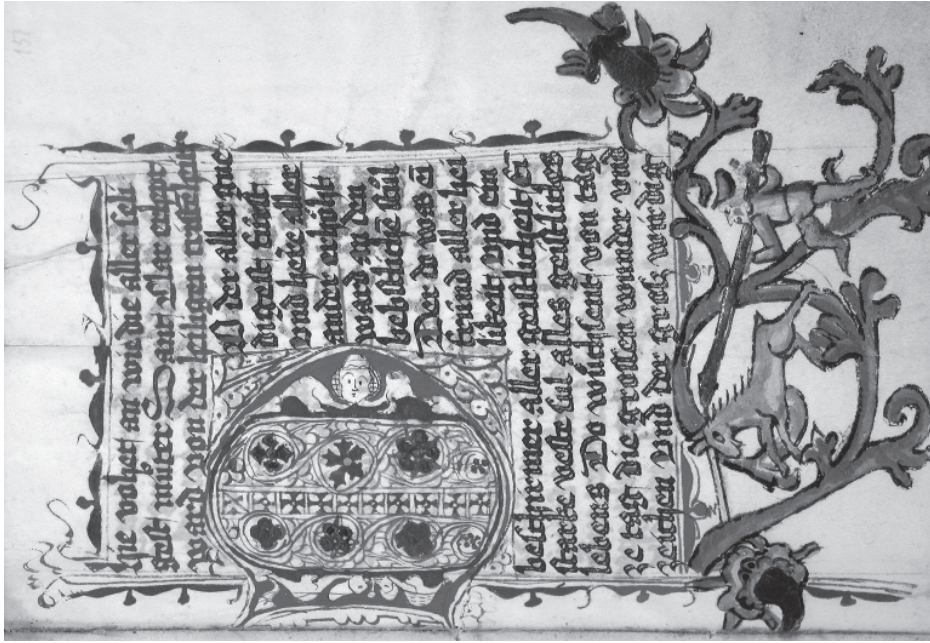 157
hye volget an wie die aller seli
gost muter Sant Clar erhept
ward von der heiligen cristenheit
O der allergne
digest fürst
vnd herre aller
ander erhöht
ward an den
bebstlichē stůl
Der do was ein
freund aller hei
likeit vnd ein
beschirmer aller geistlicheit ein
starke veste sul alles geistliches
lebens Do wůchsent von tag
ze tag die grossen wunder vnd
zeichen vnd der wirdig